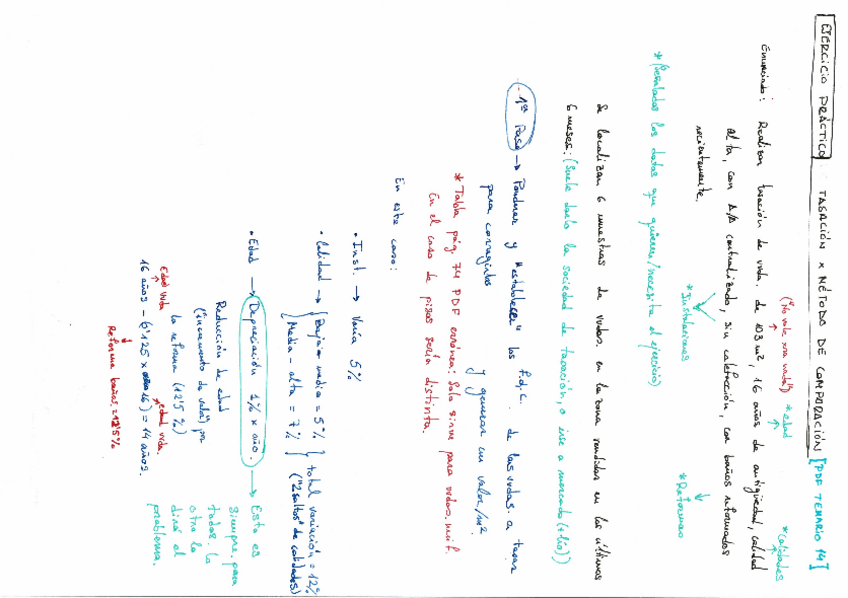 EJERCICIO PRÁCTICO TASACIÓN x MÉTODO DE COMPARACIÓN [PDF TEMARIO 14]
("No vale para nada") *edad *calidades
Enunciado: Realizar tasación de vvda. de 103 m², 16 años de antigüedad, calidad
alta, con A/A centralizado, sin calefacción, con baños reformados
recientemente.
*Instalaciones *Reformas
*(Señalados los datos que quieren/necesita el ejercicio)
Se localizan 6 muestras de vvdas. en la zona vendidas en los últimos
6 meses: (Suele darlo la sociedad de tasación, o irse a mercado (+ lío))
- 1er Paso → Ponderar y "establecer" los f.d.c. de las vvdas. a tasar
para corregirlos y generar un valor/m².
* Tabla pág. 74 PDF errónea: Solo sirve para vvdas. unif.
En el caso de pisos sería distinta.
En este caso:
• Inst. → Varía 5%
• Calidad → { Baja - media = 5% } total variación = 12%
{ Media - alta = 7% } ("2 saltos" de calidades)
• Edad → Depreciación 1% x año. → Esto es
siempre para
todas. Lo
otro lo
dirá el
problema.
Reducción de edad
("incremento de valor") por
la reforma (12'5%)
Edad vvda edad vvda.
16 años - (0'125 x 16) = 14 años.
Reforma baños = 12'5%